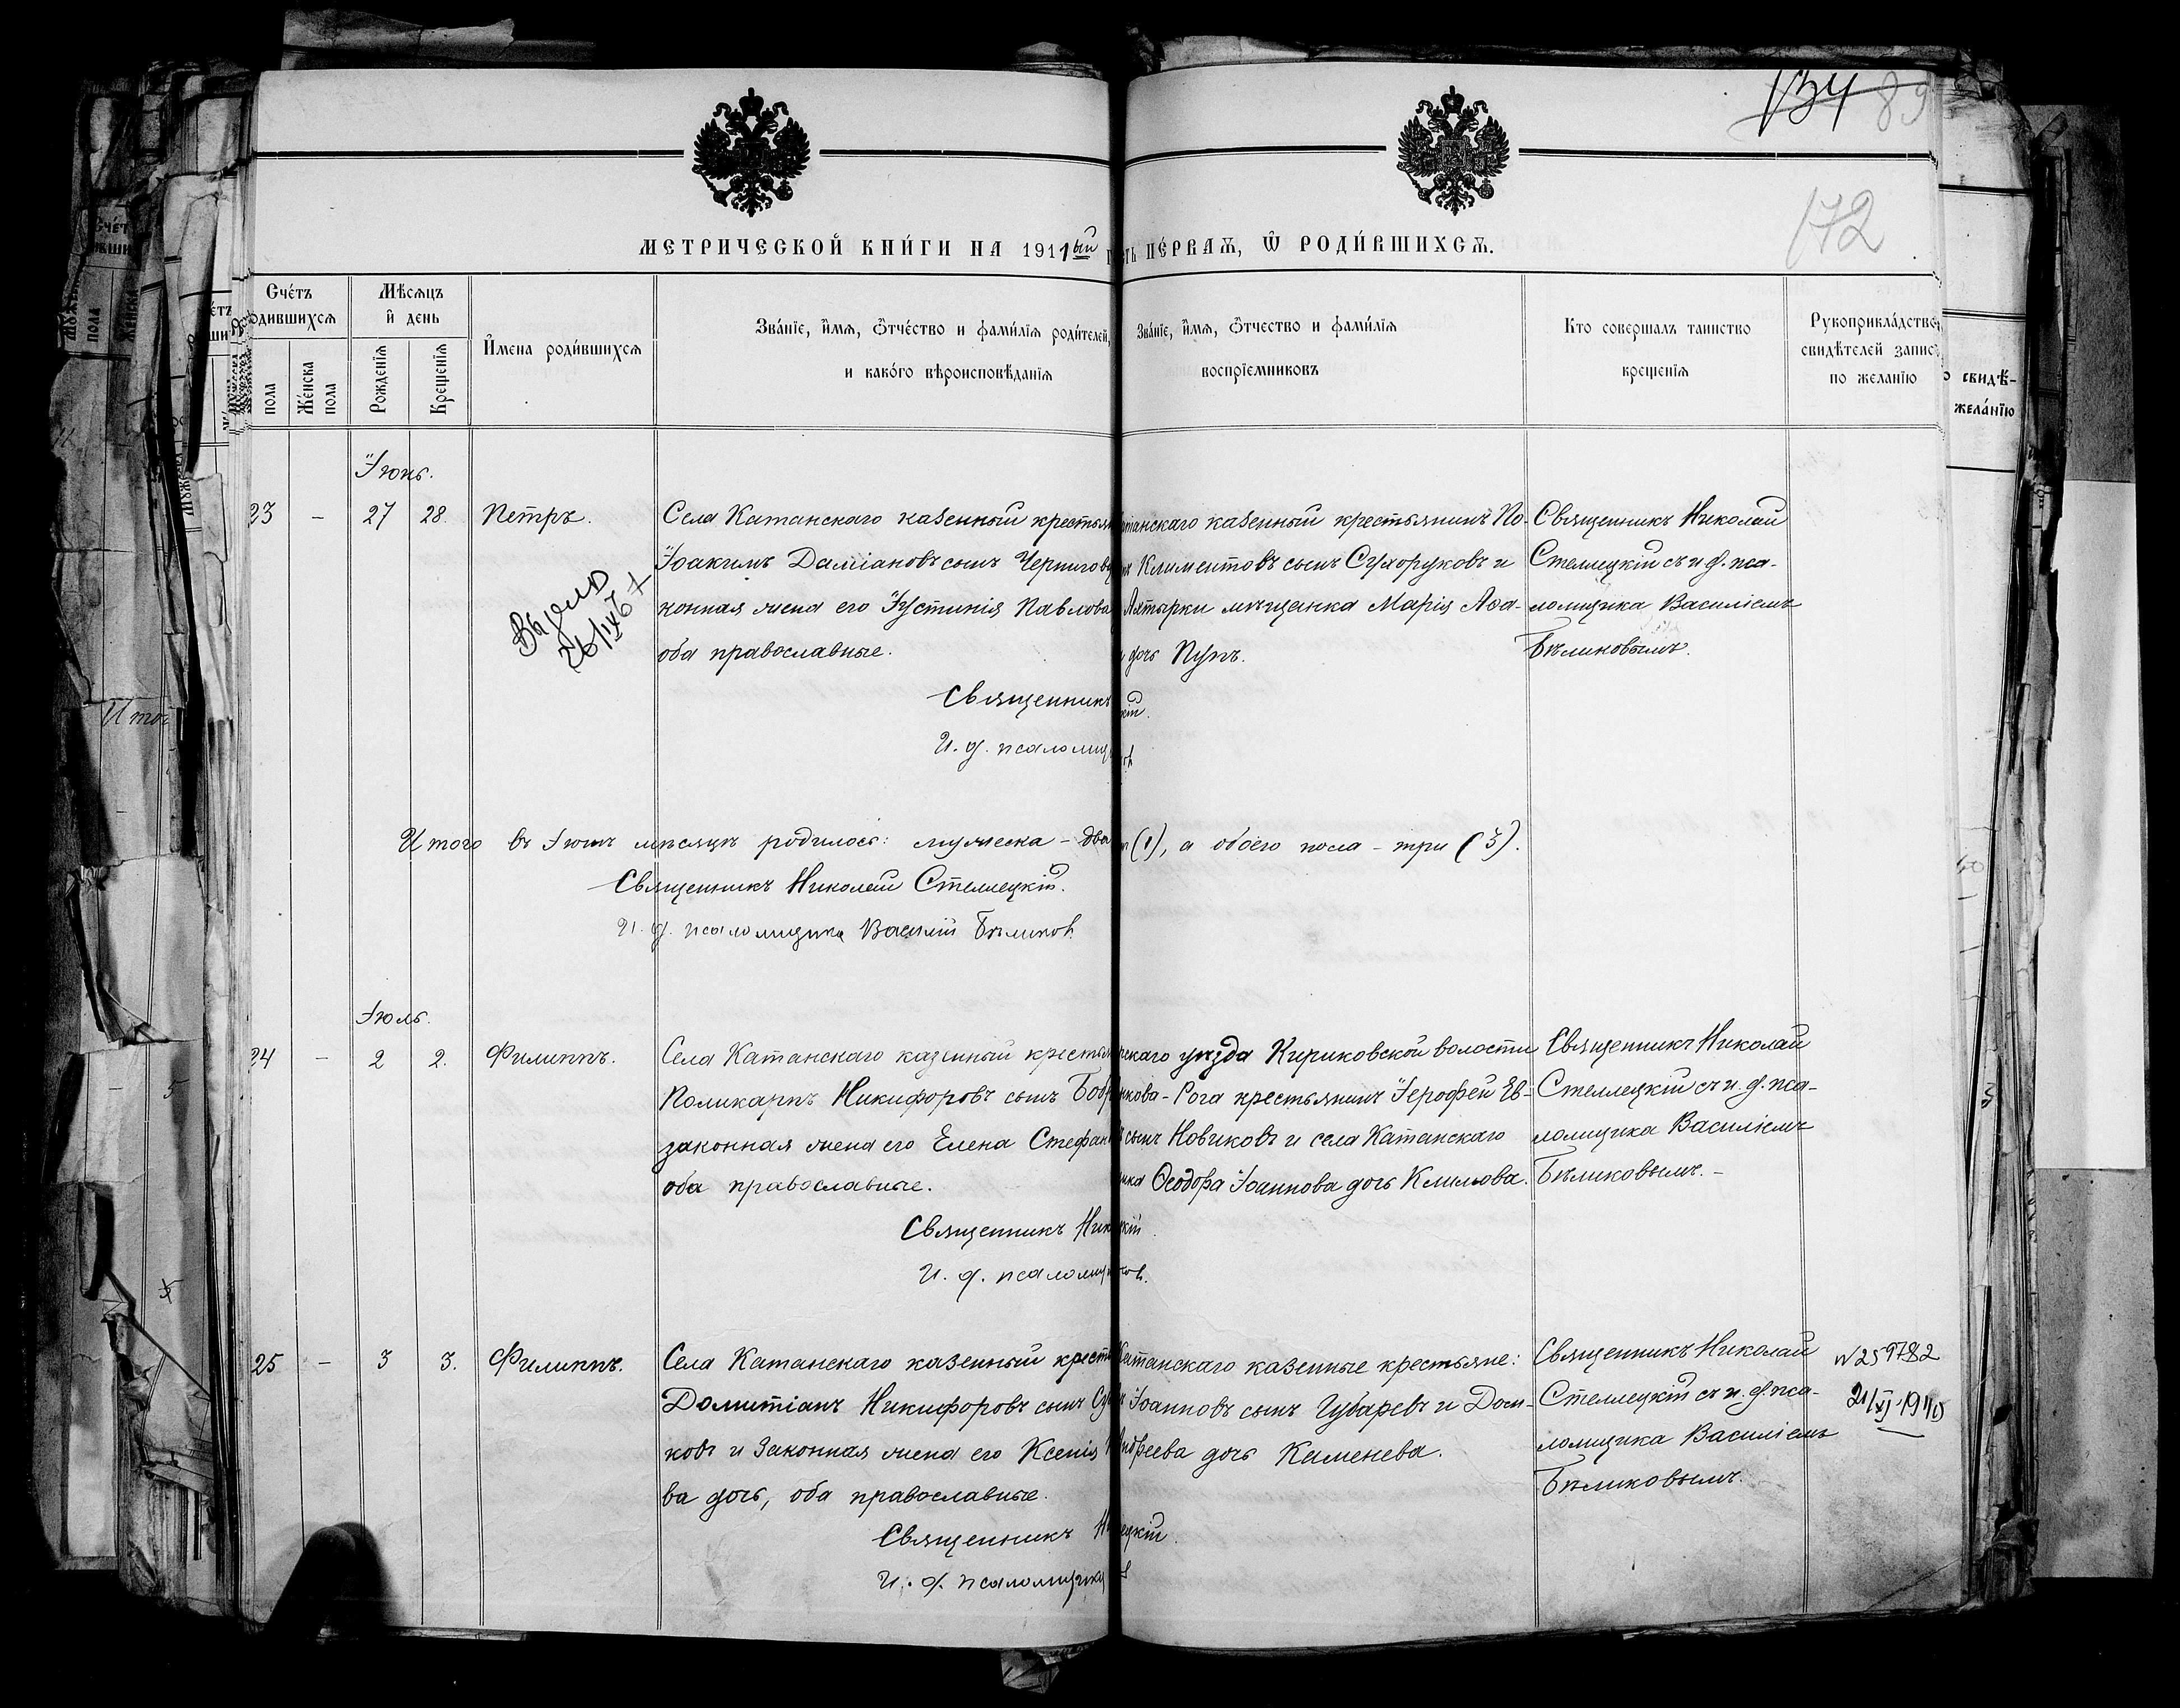 134 89
172
МЕТРИЧЕСКОЙ КНИ́ГИ НА 1911ый
ПЕ́РВАѦ, Ѡ҆ РОДИ́ВШИХСѦ.
Сче́тъ
родившихсѧ
пола
Же́нска
пола
Мѣсѧцъ
и҆ день
Рожденїѧ
Крещенїѧ
И҆мена роди́вшихсѧ
Зва́нїе, и҆мѧ, ѻ҆тче́ство и фами́лїѧ роди́телей,
и како́гѡ вѣроисповѣ́данїѧ
Зва́нїе, и҆мѧ, ѻ҆тчество и фами́лїѧ
воспрїемниковъ
Кто совершалъ таинство
крещенїѧ
Рукоприкла́дство
свидѣтелей записи
по желанїю
свидѣ-
жела́нїю
Іюнь.
23 – 27 28. Петръ.
Села Катанскаго казенный крестьян
Іоакимъ Даміановъ сынъ Чернигов
конная жена его Іустинія Павлова
оба православные.
Священникъ
И. д. псаломщ
танскаго казенный крестьянинъ По-
Климентовъ сынъ Сухоруковъ и
Ахтырки мѣщанка Марія Аѳа-
дочь Пупъ.
кій.
Священникъ Николай
Стеллецкій съ и. д. пса-
ломщика Василіемъ
Бѣликовымъ.
Итого въ Іюнѣ мѣсяцѣ родилось: мужеска – два
(1), а обоего пола – три (3).
Священникъ Николай Стеллецкій.
И. д. псаломщика Василій Бѣликов
Іюль.
24 – 2 2. Филиппъ.
Села Катанскаго казенный крестьян
Поликарпъ Никифоровъ сынъ Бобр
законная жена его Елена Стефан
оба православные.
Священникъ Ник
И. д. псаломщ
рскаго уѣзда Кириковской волости
нкова-Рога крестьянинъ Іерофей Ев-
сынъ Новиковъ и села Катанскаго
нка Ѳеодора Іоаннова дочь Климова.
кій.
Священникъ Николай
Стеллецкій съ и. д. пса-
ломщика Василіемъ
Бѣликовымъ. –
25 – 3 3. Филиппъ.
Села Катанскаго казенный крест
Домитіанъ Никифоровъ сынъ Су
ковъ и законная жена его Ксенія
ва дочь, оба православные.
Священникъ Н
И. д. псаломщика
Катанскаго казенные крестьяне:
Іоанновъ сынъ Губаревъ и Дом-
Андреева дочь Каменева.
ецкій.
Священникъ Николай
Стеллецкій съ и. д. пса-
ломщика Василіемъ
Бѣликовымъ.
N 259782